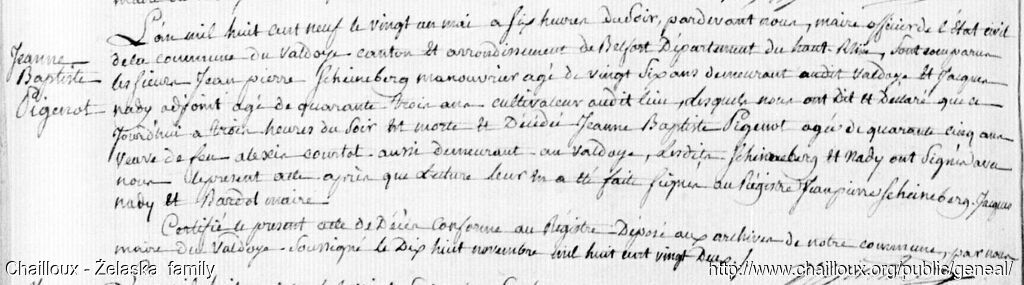 L'an mil huit cent neuf le vingt un mai a six heures du soir, pardevant nous, maire officier de l'état civil
Jeanne
Baptiste
Pigenot
de la commune du Valdoye canton et arrondissement de Belfort Département du haut Rhin, sont comparus
les sieurs Jean pierre Scheineberg manouvrier agé de vingt six ans demeurant audit Valdoye et Jacques
nady adjoint agé de quarante trois ans cultivateur audit lieu, lesquels nous ont Dit et Declaré que ce
Jourd'hui a trois heures du Soir est morte et Décédée Jeanne Baptiste Pigenot agée de quarante cinq ans
veuve de feu alexis courtot aussi demeurant au Valdoye, lesdits Scheineberg et Nady ont Signés avec
nous le present acte après que Lecture leur en a été faite Signés au Régistre Jean pierre Scheineberg, Jacques
nady et Bardot maire.
Certifié le present acte de Décès Conforme au Régistre Déposé aux archives de notre commune, par nous
maire Du Valdoye soussigné le Dix huit novembre mil huit cent vingt Deux
Chailloux - Želaska family
http://www.chailloux.org/public/geneal/